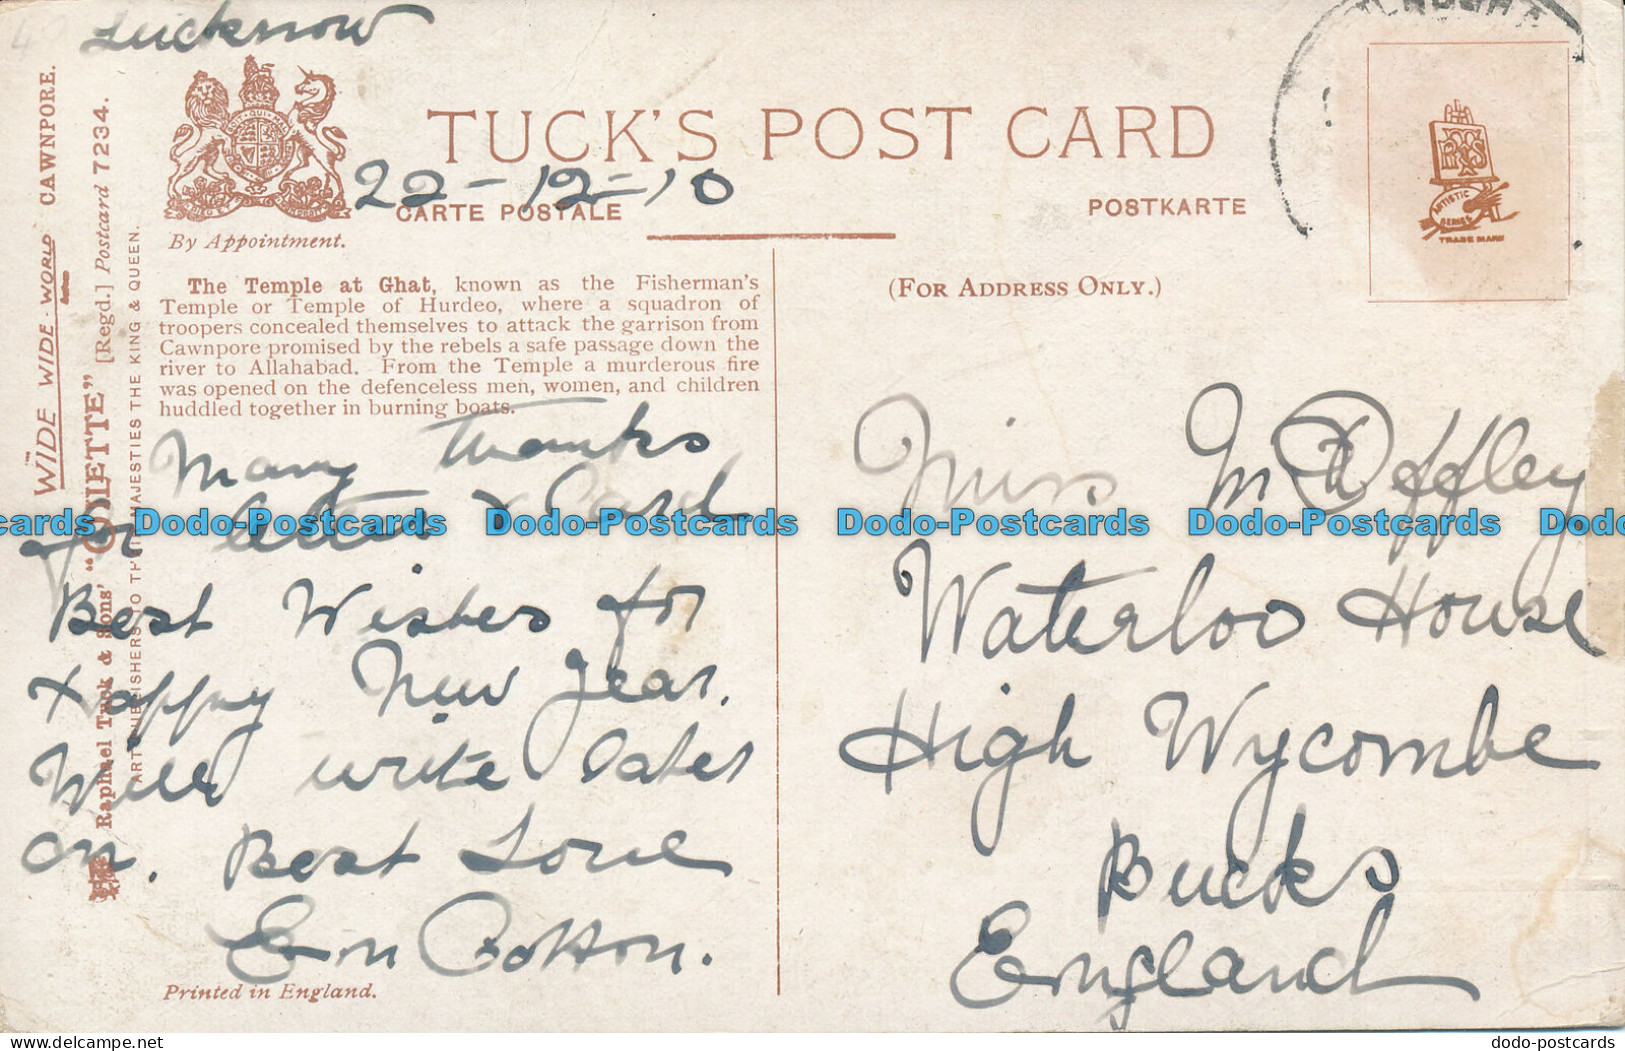 Lucknow
22-12-10
TUCK'S POST CARD
CARTE POSTALE
POSTKARTE
By Appointment.
(FOR ADDRESS ONLY.)
WIDE WIDE-WORLD CAWNPORE.
Raphael Tuck & Sons' "OILETTE" [Regd.] Postcard 7234.
ART PUBLISHERS TO THEIR MAJESTIES THE KING & QUEEN.
The Temple at Ghat, known as the Fisherman's
Temple or Temple of Hurdeo, where a squadron of
troopers concealed themselves to attack the garrison from
Cawnpore promised by the rebels a safe passage down the
river to Allahabad. From the Temple a murderous fire
was opened on the defenceless men, women, and children
huddled together in burning boats.
Many Thanks
for letter & Card
Best Wishes for
Happy New Year.
Will write later
on. Best Love
Cotton.
Printed in England.
ARTISTIC
SERIES
TRADE MARK
Miss
Waterloo House
High Wycombe
Bucks
England
cards Dodo-Postcards Dodo-Postcards Dodo-Postcards Dodo-Postcards Dodo
dodo-postcards